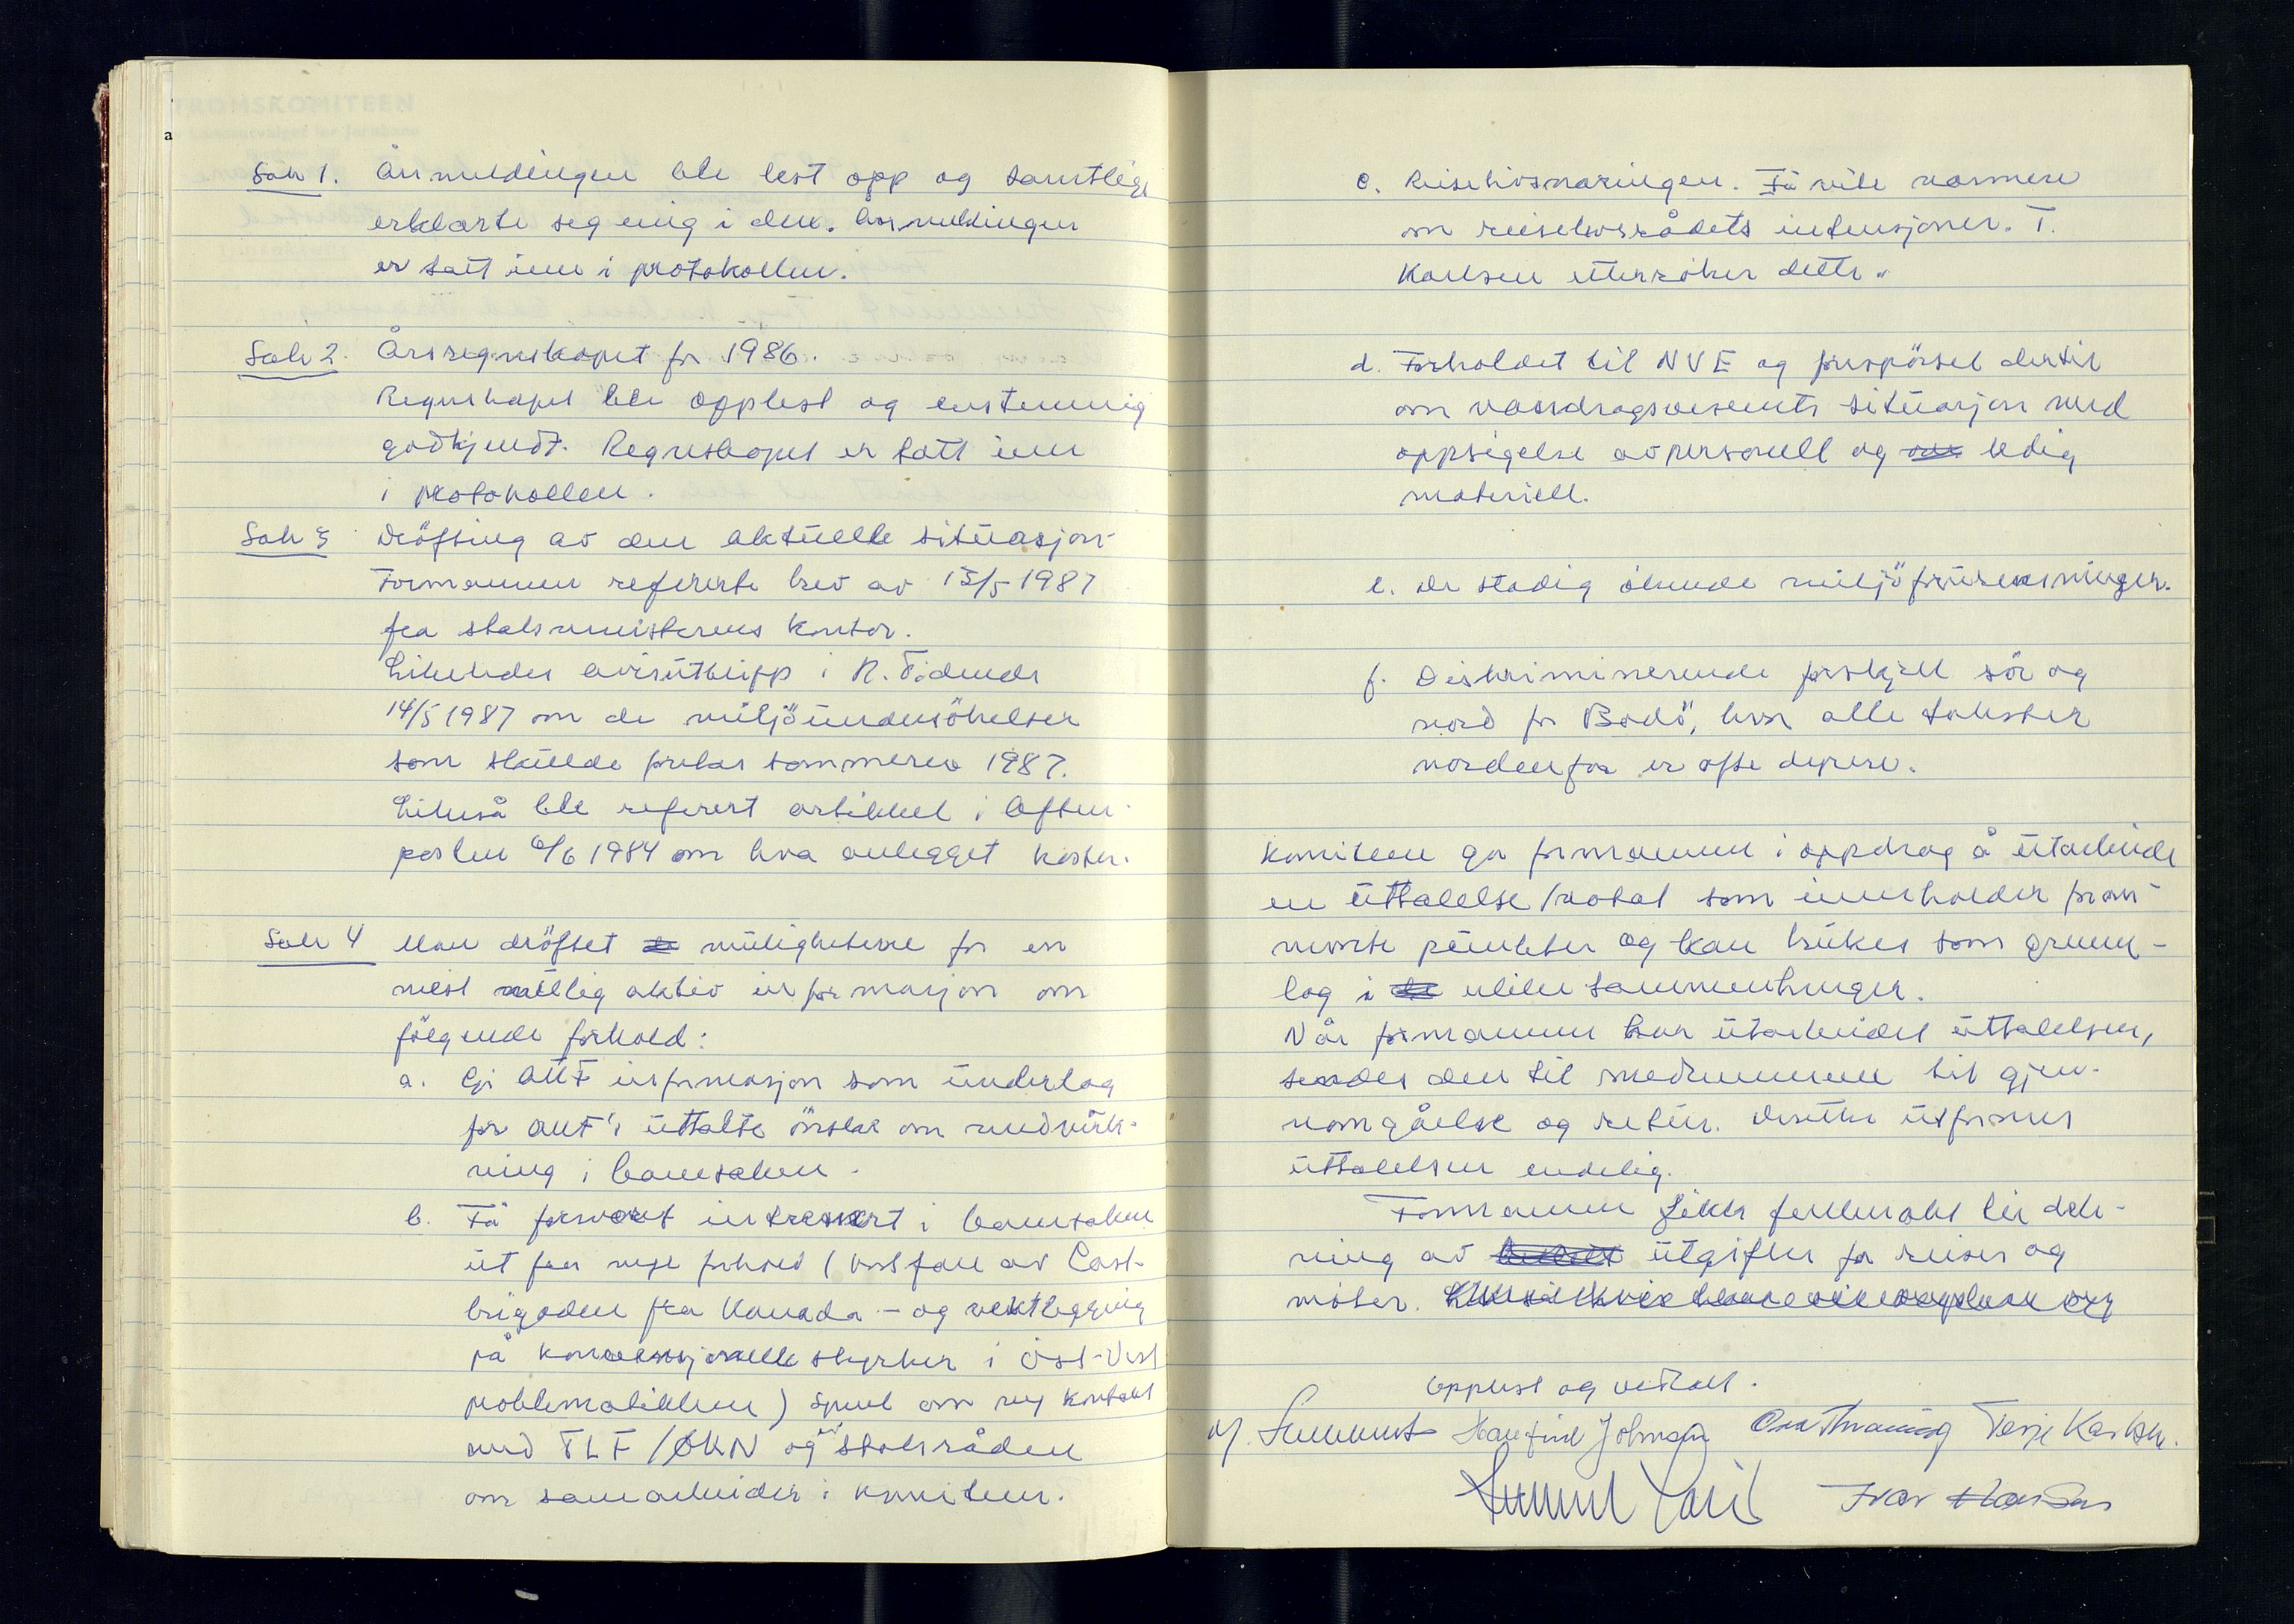 Sak 1. Årsmeldingen ble lest opp og samtlige
erklærte seg enig i den. Årsmeldingen
er tatt inn i protokollen.
Sak 2. Årsregnskapet for 1986.
Regnskapet ble opplest og enstemmig
godkjendt. Regnskapet er tatt inn
i protokollen.
Sak 3 Dröfting av den aktuelle situasjon
Formannen refererte brev av 15/5 1987
fra statsministerens kontor.
Likeledes avisutklipp i N. Tidende
14/5 1987 om de miljöundersökelser
som skulde foretas sommeren 1987.
Likeså ble referert artikkel i Aften-
posten 6/6 1984 om hva anlegget koster.
Sak 4 Man dröftet muligheterne for en
mest mullig aktiv informasjon om
fölgende forhold:
a. Gi AUF informasjon som underlag
for AUF's uttalte önsker om medvirk-
ning i banesaken.
b. Få forsvaret intressert i banesaken
ut fra nye forhold (bortfall av Cast-
brigaden fra Kanada - og vektlegging
på konvensjonelle styrker i Öst-Vest
problematikken) Spml om ny kontakt
med TLF/ØKN og statsråden
om samarbeider i komiteen.
c. Reiselivsnæringen. Få vite nærmere
om reiselivsrådets intensjoner. T.
Karlsen undersöker dette.
d. Forholdet til NVE og forespörsel dertil
om vassdragsvesenets situasjon med
oppsigelse av personell og ledig
materiell.
e. De stadig ökende miljöforurensninger.
f. Diskriminerende forskjell sör og
nord for Bodö, hvor alle takster
nordenfor er ofte dyrere.
Komiteen ga formannen i oppdrag å utarbeide
en uttalelse/notat som inneholder foran
nevnte punkter og kan brukes som grunn-
lag i ulike sammenhenger.
Når formannen har utarbeidet uttalelsen,
sendes den til medlemmene til gjen-
nomgåelse og retur. Deretter utformes
uttalelsen endelig.
Formannen söker fylkesvis til dek-
ning av utgifter for reiser og
möter.
Opplest og vedtatt.
Hanfind Johnsen Terje Karlsen.
Ivar Hansen